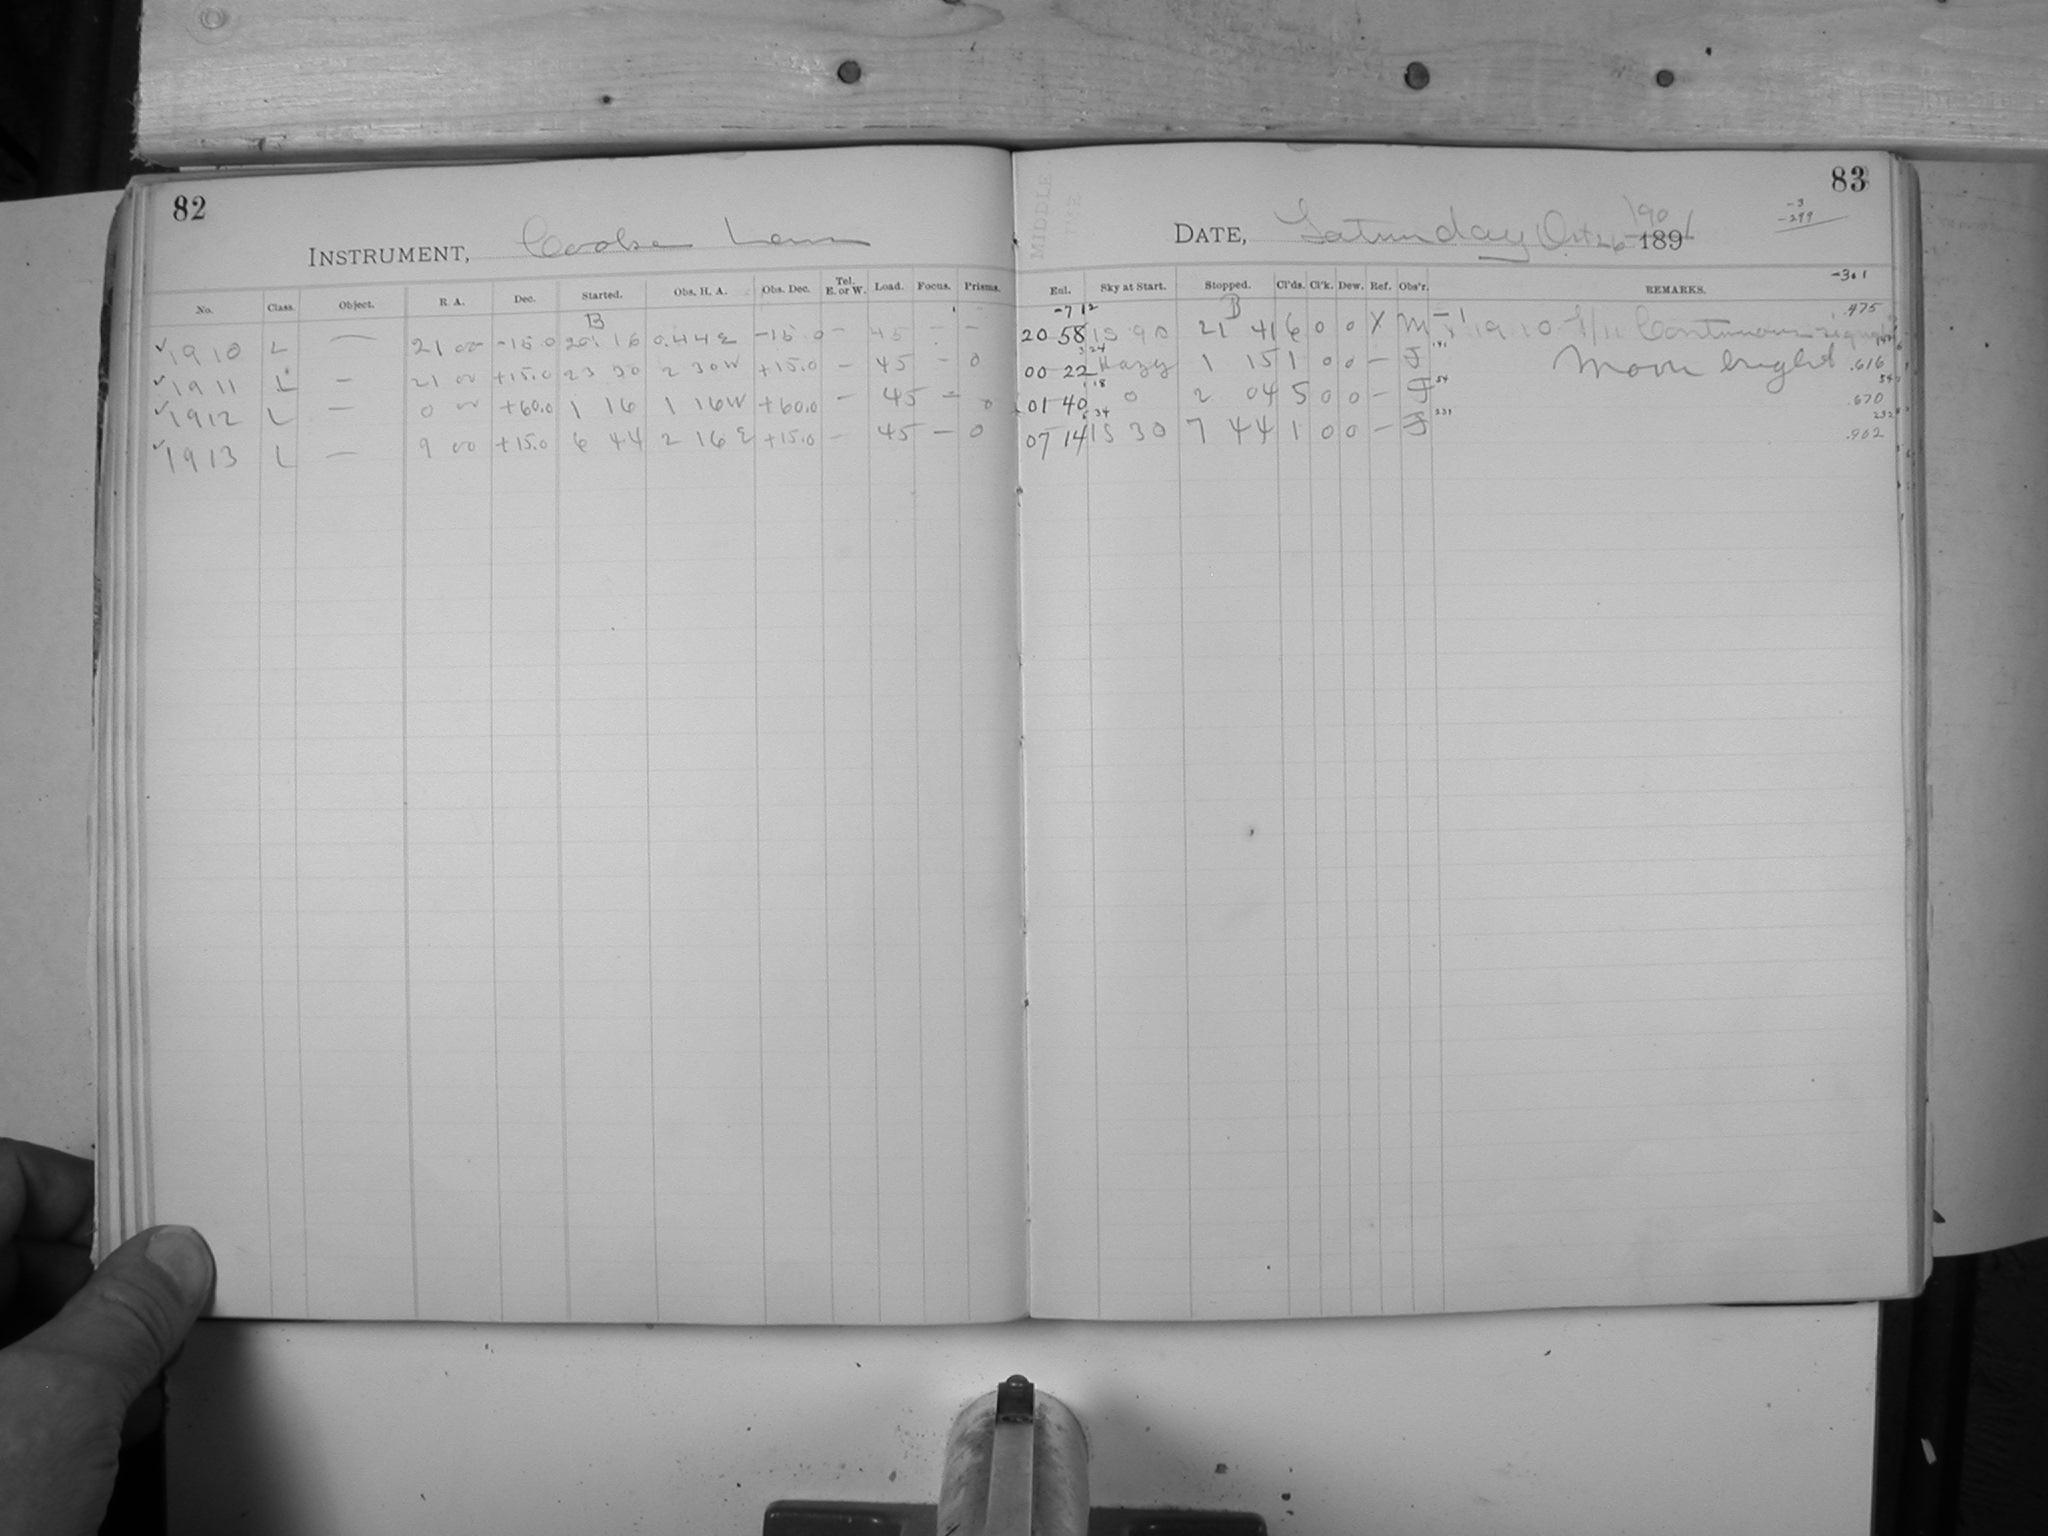 82
INSTRUMENT, Cooke Lens
No. Class. Object. R. A. Dec. Started. Obs. H. A. Obs. Dec. Tel. E. or W. Load. Focus. Prisms.
B
✓1910 L — 21 00 -15.0 20 16 0.44E -15.0 — 45 — —
✓1911 L — 21 00 +15.0 23 30 2 30W +15.0 — 45 — 0
✓1912 L — 0 00 +60.0 1 16 1 16W +60.0 — 45 — 0
✓1913 L — 9 00 +15.0 6 44 2 16E +15.0 — 45 — 0
83
MIDDLE
TIME
-3
-299
DATE, Saturday Oct 26 1901
189
-301
Enl. Sky at Start. Stopped. Cl'ds. Cl'k. Dew. Ref. Obs'r. REMARKS.
-7 12 B .475
20 58 IS 90 21 41 6 0 0 X M 1910 Continuous
3 24
00 22 Hazy 1 15 1 0 0 — J Moon bright .616
1 18
01 40 0 2 04 5 0 0 — J 54 .670
5 34
07 14 IS 30 7 44 1 0 0 — J 231 232 .902